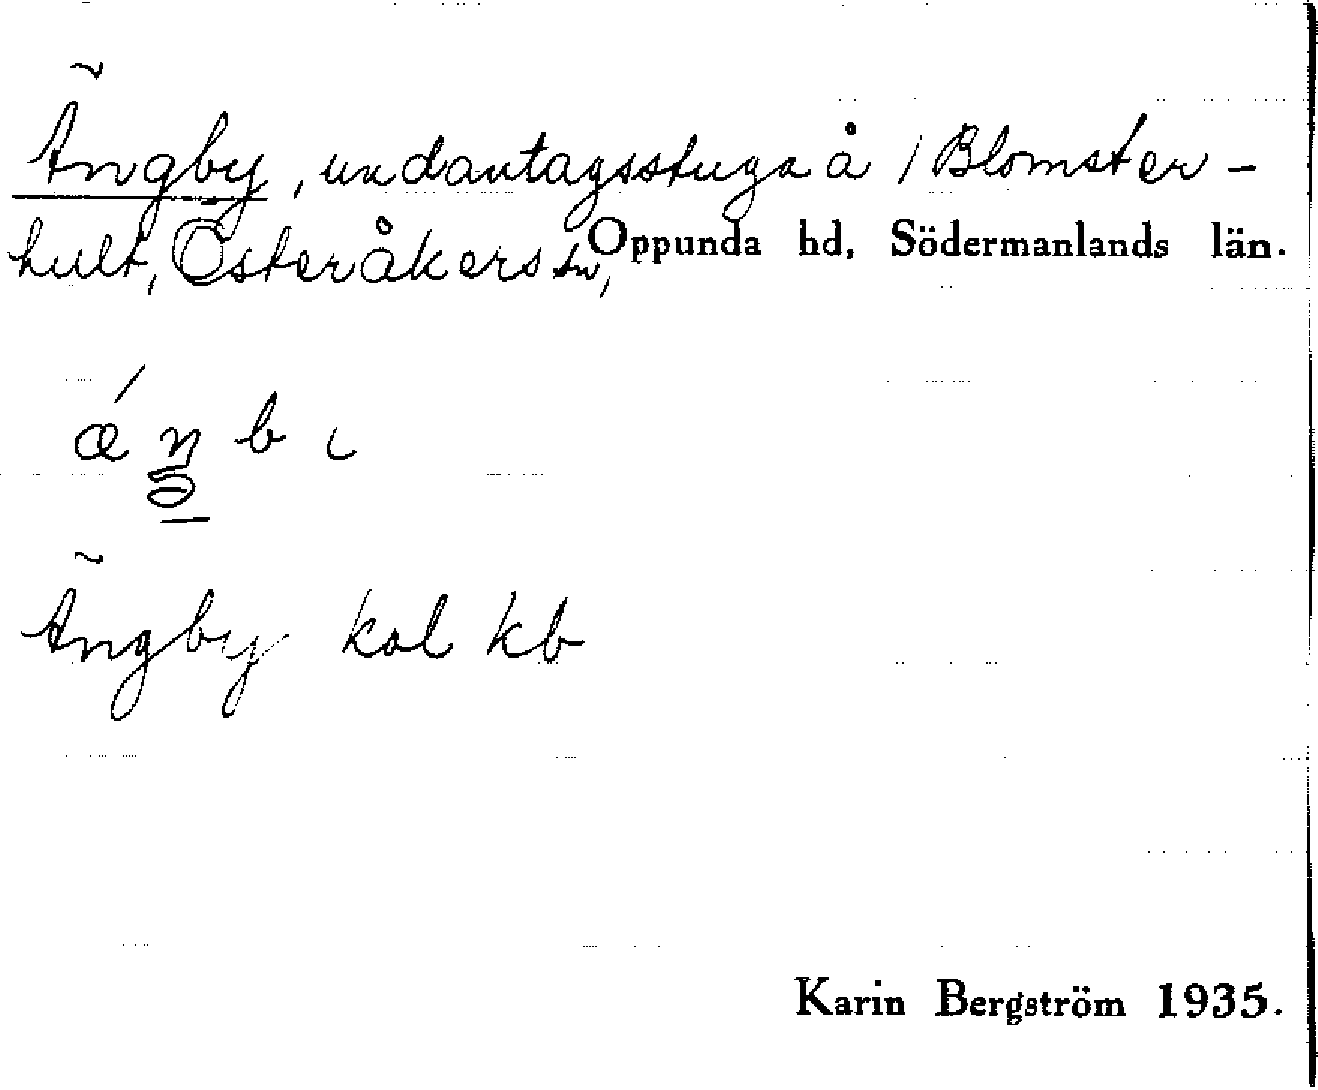 Ängby, undantagsstuga å /Blomster-
hult, Österåkers sn, Oppunda hd, Södermanlands län.
Ängby kol kb
Karin Bergström 1935.